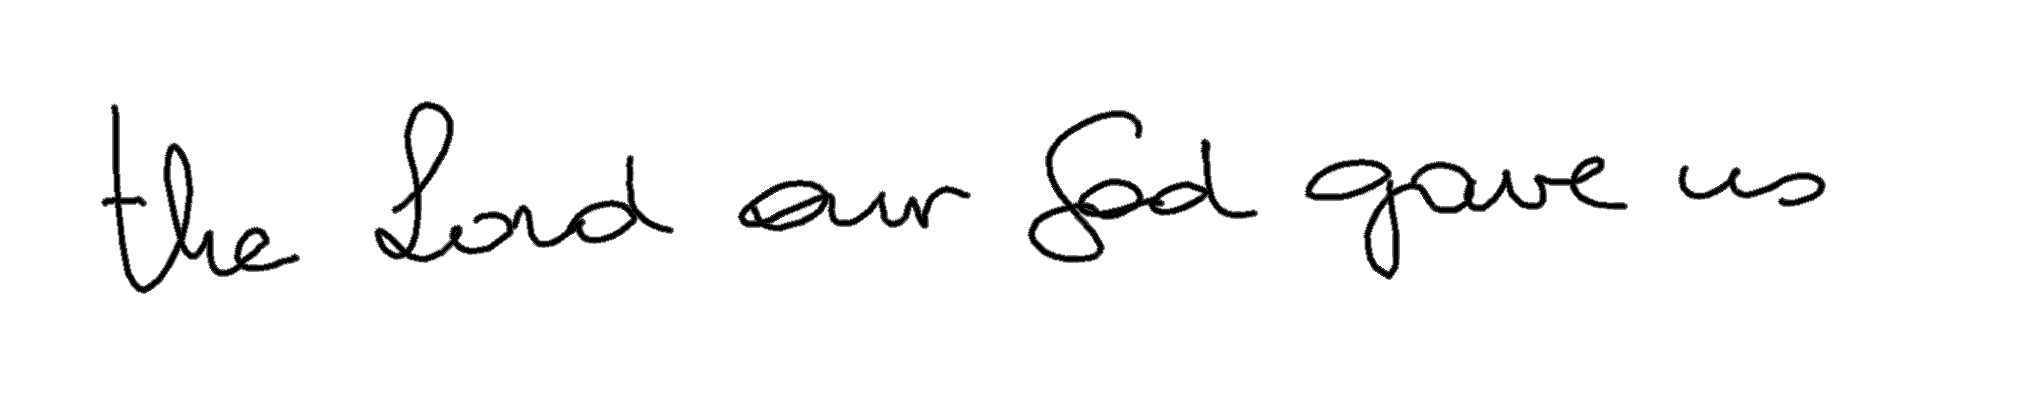 the Lord our God gave us